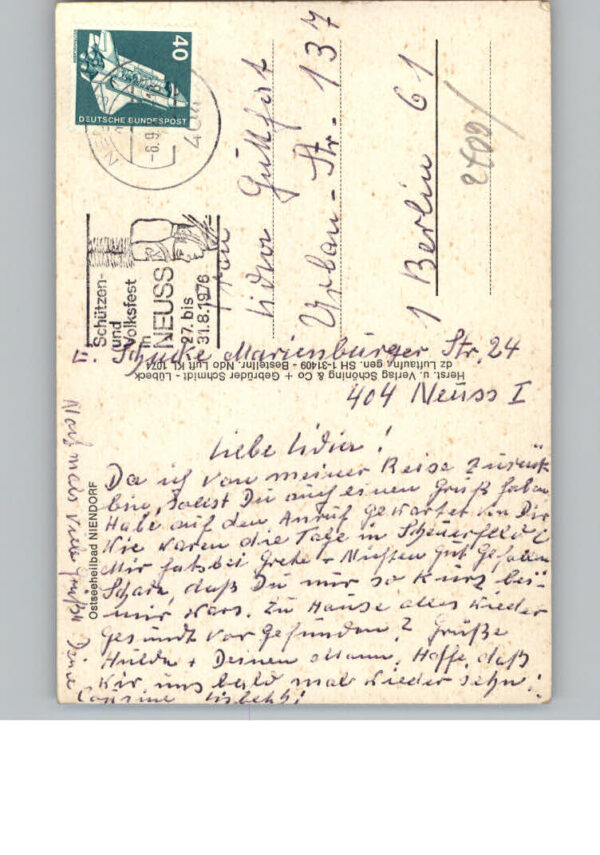 40
DEUTSCHE BUNDESPOST
Schützen-
und
Volksfest
in
NEUSS
27. bis
31.8.1976
Frau
Lidia
Urban-Str. 137
1 Berlin 61
E. Marienburger Str. 24
404 Neuss I
Herst. u. Verlag Schöning & Co + Gebrüder Schmidt - Lübeck
dz Luftaufn. gen. SH 1-31409 - Bestellnr. Ndo Luft KL 1074
Ostseeheilbad NIENDORF
Liebe Lidia!
Da ich von meiner Reise zurück
bin, sollst Du auch einen Gruß haben
Habe auf den Anruf gewartet von Dir
Wie waren die Tage in Scheuerfeld?
Mir hats bei Grete + gut gefallen
Schade, daß Du nur so kurz bei
mir wars. Zu Hause alles wieder
gesund vorgefunden? Grüße
Hulda + Deinen Mann, Hoffe, daß
wir uns bald mal wieder sehn!
Nochmals viele Grüße Deine
Cousine Lisbeth!